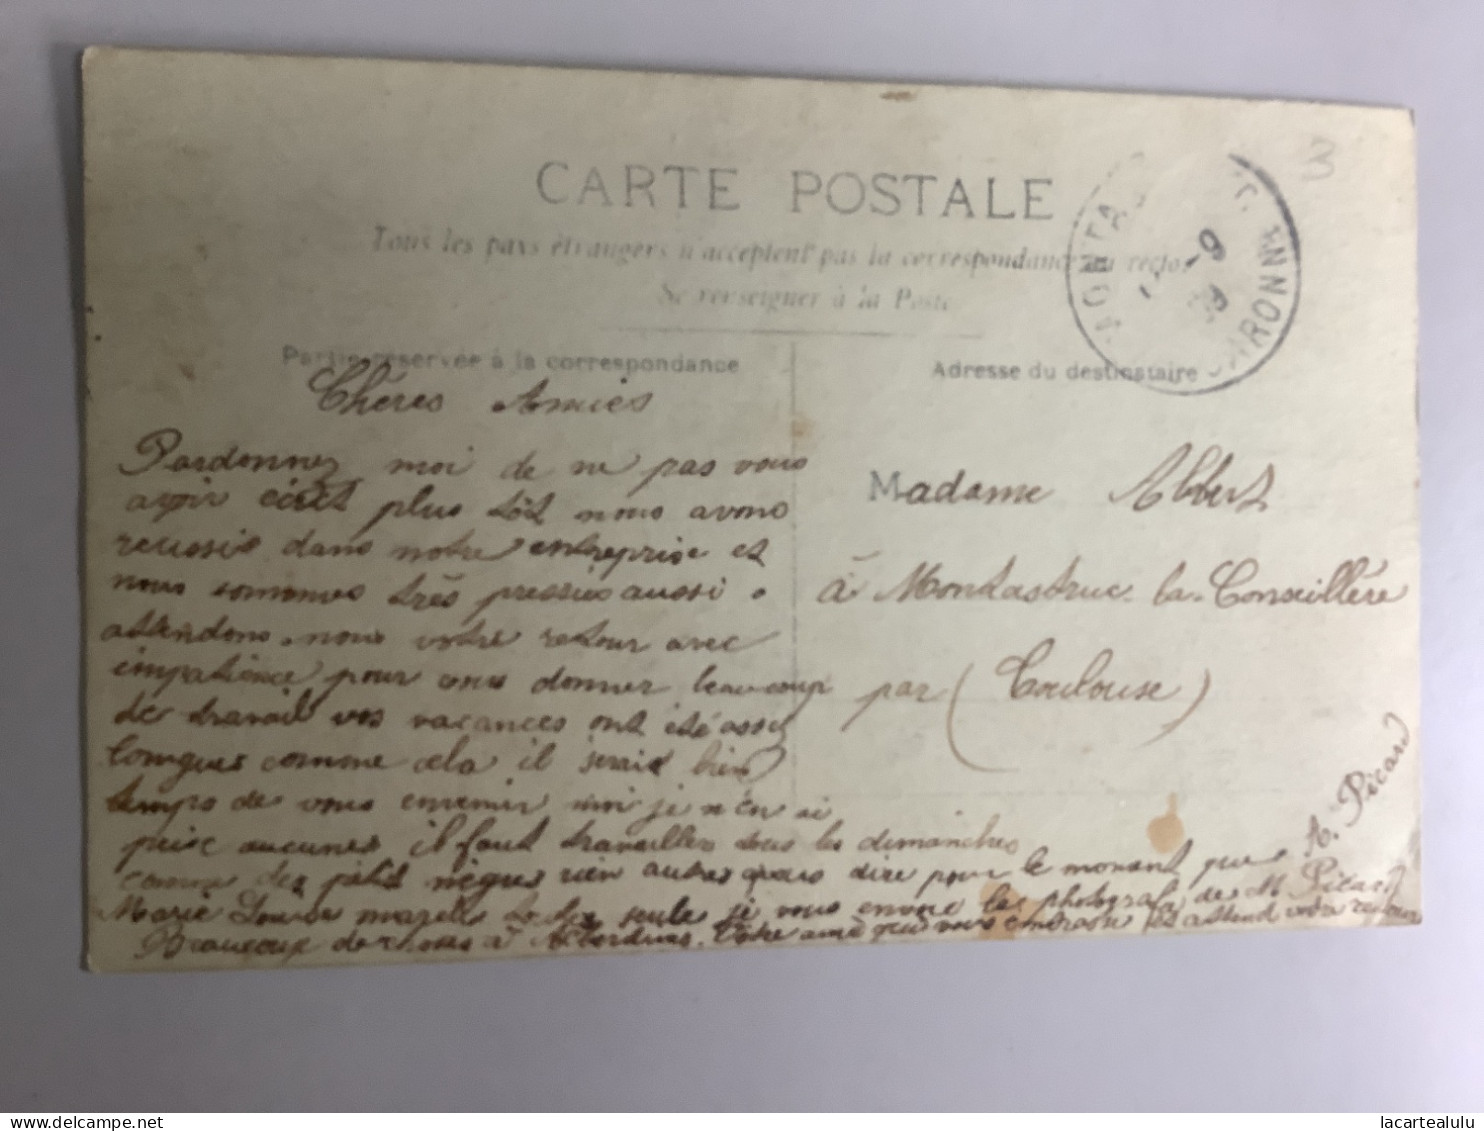 CARTE POSTALE
Tous les pays étrangers n'acceptent pas la correspondance au recto
Se renseigner à la Poste
Partie réservée à la correspondance
Adresse du destinataire
3
-9
GARONNE
Chères Amies
Pardonnez moi de ne pas vous
avoir écrit plus tôt nous avons
reussie dans notre entreprise et
nous sommes très pressées aussi
attendons-nous votre retour avec
impatience pour vous donner beaucoup
de travail vos vacances ont été assez
longues comme cela il serait bien
temps de vous enrevenir moi je n'en ai
prise aucunes il faut travailler tous les dimanches
comme des petits nègres rien autres à vous dire pour le moment que
Marie Louise seule je vous envoie les de M. Picard
Beaucoup de choses à votre amie que vous embrasse et attend votre retour
A. Picard
Madame Albert
à Montastruc-la-Conseillère
par (Toulouse)
delcampe.net
lacartealulu